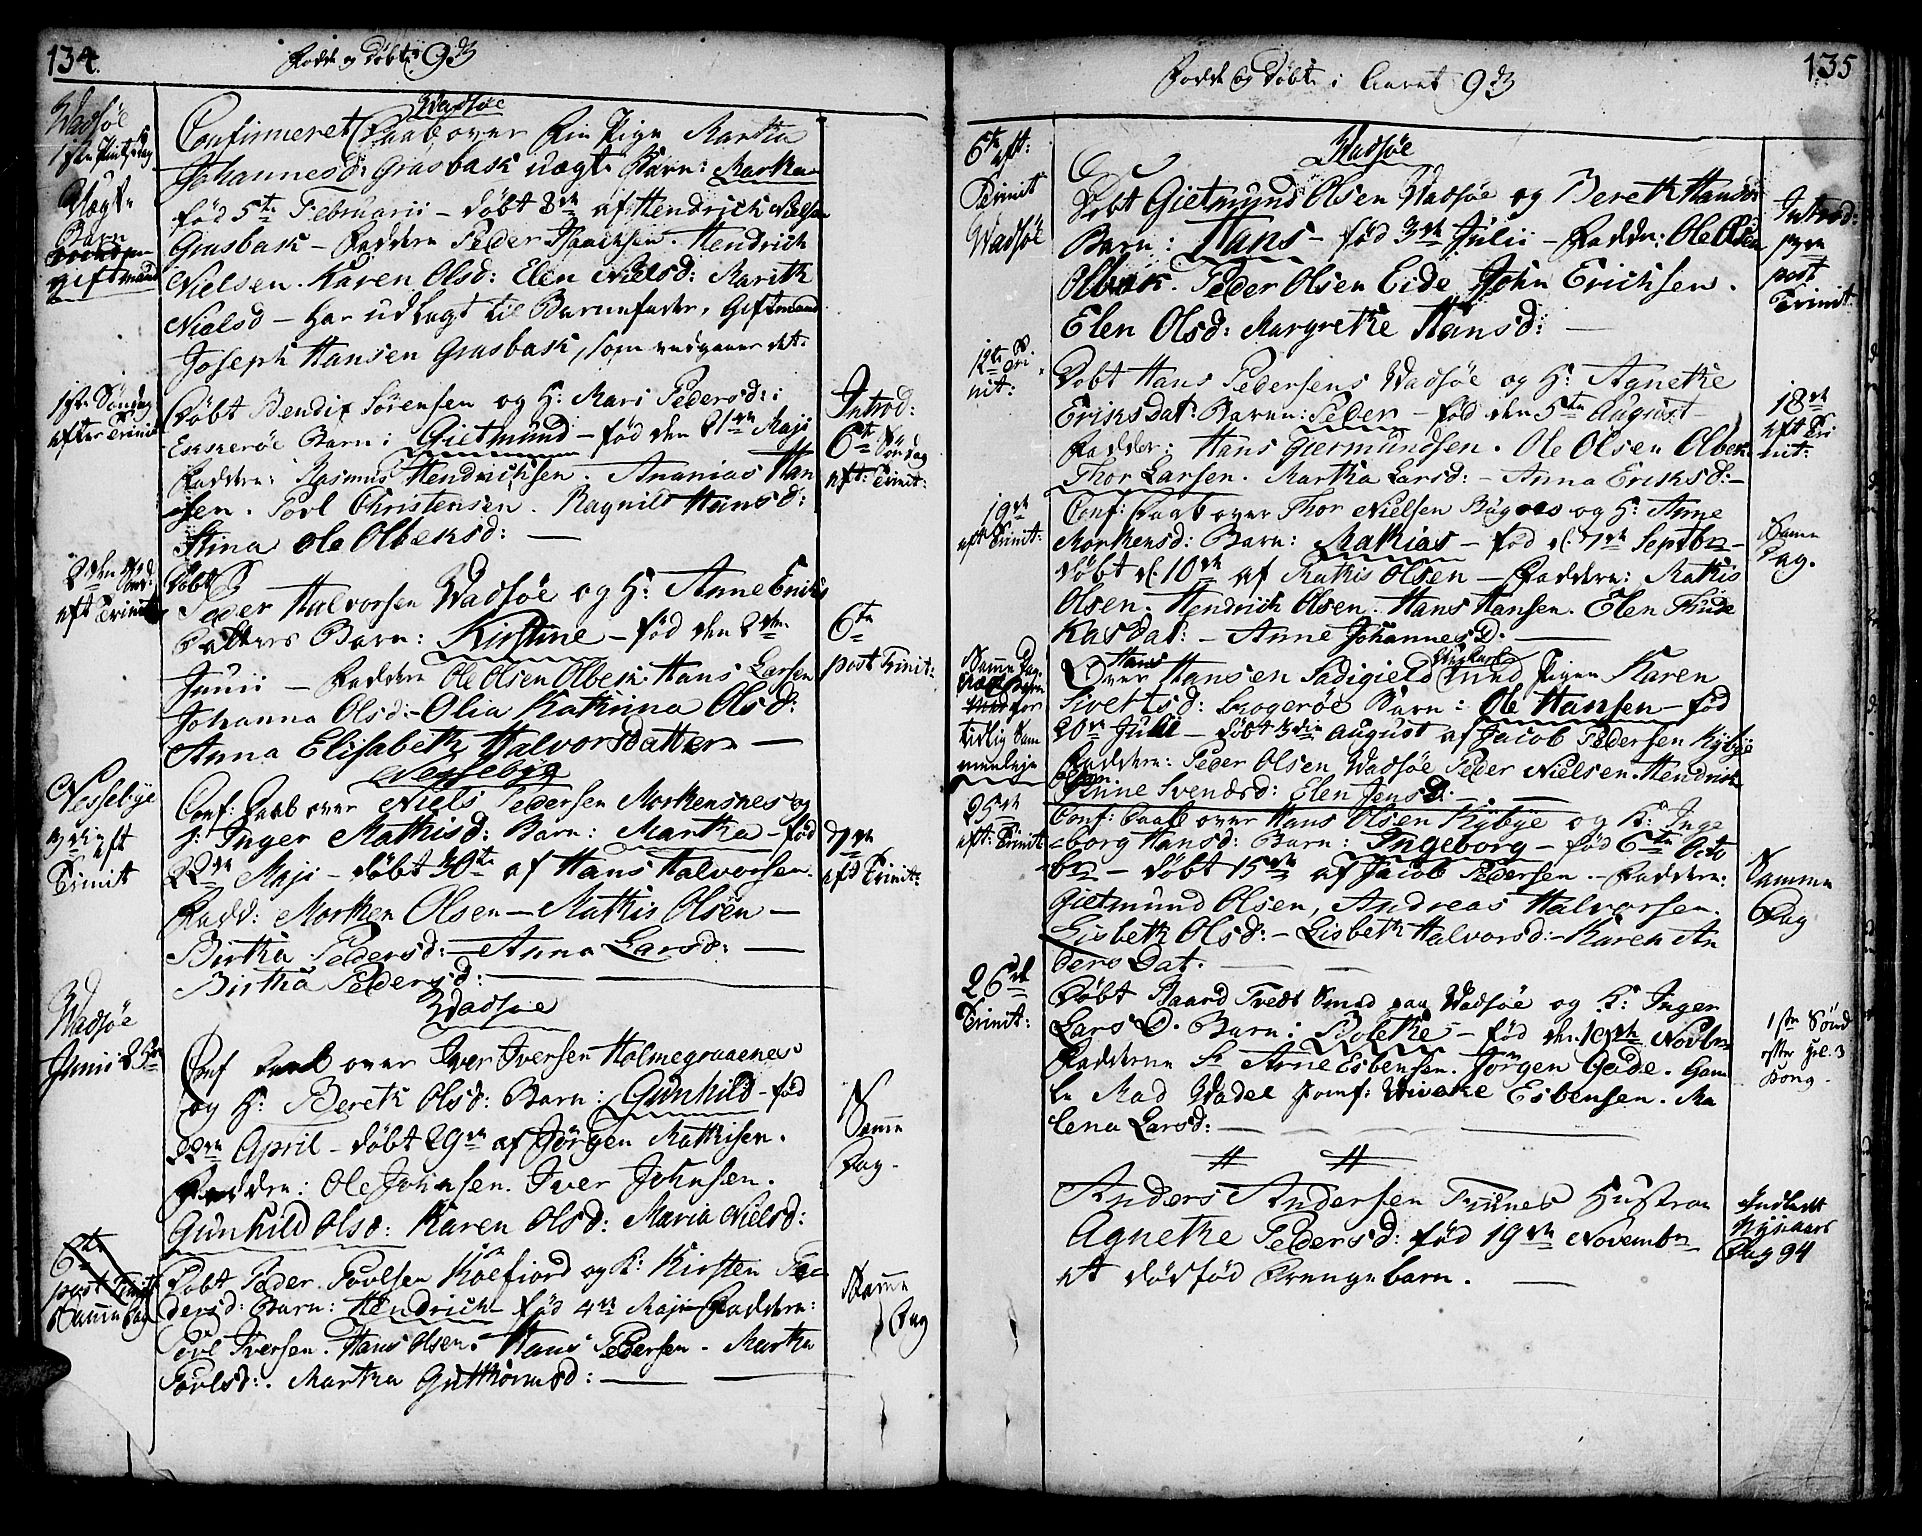 134.
Fødde og Døbte 93
Wadsøe
1ste Pintzdag
Uægte
Barn
gift mand
Wadsøe
Confirmeret Daab over Pige Martha
Johannesd: Grasbak uægte Barn: Martha
fød 5te Februarii – døbt 8de af Hendrich Nielsen
Grasbak – Faddere Peder Isaachsen. Hendrich
Nielsen. Karen Olsd: Elen Nielsd: Marith
Nielsd – har udlagt til Barnefader, Giftmand
Joseph Hansen Grasbak, som vedgaaer det.
1ste Søndag
efter Trinit
Døbt Bendix Sørensen og H: Mari Pedersd: i
Ekkerøe Barn: Gietmund – fød den 21de Maji
Faddere: Rasmus Hendrichsen. Ananias Han
sen. Povl Christensen. Ragnild Hansd:
Stina Ole Olbeksd: —
Introd:
6te Søndag
eft: Trinit:
2den Sønd:
eft Trinit
Døbt
Peder Halvorsen Wadsøe og H: Anne Erichs
Datters Barn: Kirstine – fød den 2den
Junii – Faddere Ole Olsen Olbek. Hans Larsen
Johanna Olsd: – Olia Kathrina Olsd:
Anna Elisabeth Halvorsdatter —
6te
post Trinit:
Nessebye
3die eft
Trinit
Nessebye
Conf: Daab over Niels Pedersen Morkensnes og
H: Inger Mathisd: Barn: Martha – fød
22de Maji – døbt 30te af Hans Halvorsen.
Fadd: Morthen Olsen – Mathis Olsen –
Birtha Pedersd: – Anna Larsd: —
Birtha Pedersd: —
7de
eft Trinit:
Wadsøe
Junii 23de
Wadsøe
Conf Daab over Iver Iversen Holmegraaenes
og H: Bereth Olsd: Barn: Gunhild – fød
22de April – døbt 29de af Jørgen Mathisen.
Faddere: Ole Johnsen. Iver Johnsen.
Gunhild Olsd: Karen Olsd: Maria Nielsd:
Samme
Dag.
6te
post Trinit
Samme Dag
Døbt Peder Povlsen Koefiord og H: Kirsten Pe
dersd: Barn: Hendrich – fød 4de Maji Faddere:
Povl Iversen. Hans Olsen. Hans Pedersen. Martha
Povlsd: Martha Gutthormsd: —
Samme
Dag
135
Fødde og Døbte i Aaret 93
6te eft:
Trinit
Wadsøe
Wadsøe
Døbt Gietmund Olsen Wadsøe og Bereth Hansd:
Barn: Hans – fød 3de Julii – Faddr: Ole Olsen
Olbek. Peder Olsen Eide John Erichsen.
Elen Olsd: Margrethe Hansd: —
Introd:
post
Trinit:
12te Tri
nit:
Døbt Hans Pedersens Wadsøe og H: Agnethe
Eriksdat: Barn: Peder – fød den 5te August –
Faddr: Hans Giermundsen. Ole Olsen Olbek
Thor Larsen. Martha Larsd: – Anna Eriksd: –
18de
eft Tri
nit:
19de
eft Trinit:
Conf: Daab over Thor Nielsen Bugnes og H: Anne
Morkensd: Barn: Mathias – fød d. 7de Septbr
døbt d. 10de af Mathis Olsen – Faddere: Mathis
Olsen. Hendrich Olsen. Hans Hansen. Elen
Kasdat: – Anne Johannesd. —
Samme
Dag.
Samme Dag
for
tidlig Sam
menleje
Over Hans Hansen Sadigield Ungkarl med Pigen Karen
Sivertsd: Skogerøe Barn: Ole Hansen – fød
20de Julii – døbt 3die August af Jacob Pedersen Kybye
Faddere: Peder Olsen Wadsøe Peder Nielsen. Hendrich
Anne Svendsd: Elen Jensd: —
25de
aft: Trinit
Conf: Daab over Hans Olsen Kybye og H: Inge
borg Hansd: Barn: Ingeborg – fød 6te Octo
br – døbt 15de af Jacob Pedersen – Faddere:
Gietmund Olsen, Andreas Halvorsen.
Lisbeth Olsd: – Lisbeth Halvorsd: – Karen An
ders Dat. —
Samme
Dag
26de
Trinit:
Døbt Baard Tvedt Smed paa Wadsøe og H: Inger
Lars D. Barn: Bolethe – fød den 10de Novbr
Fadderne Hr Arne Esbensen. Jørgen Gade. Gam
le Mad Wadel Jomf: Wivike Esbensen. Ma
lena Larsd: —
1ste Sønd
efter Hel. 3
Kong.
Anders Andersen Hustrue
Agnethe Pedersd: fød 19de Novembr
et dødfød Drengebarn. —
Indledt
Nyeaars
Dag 94